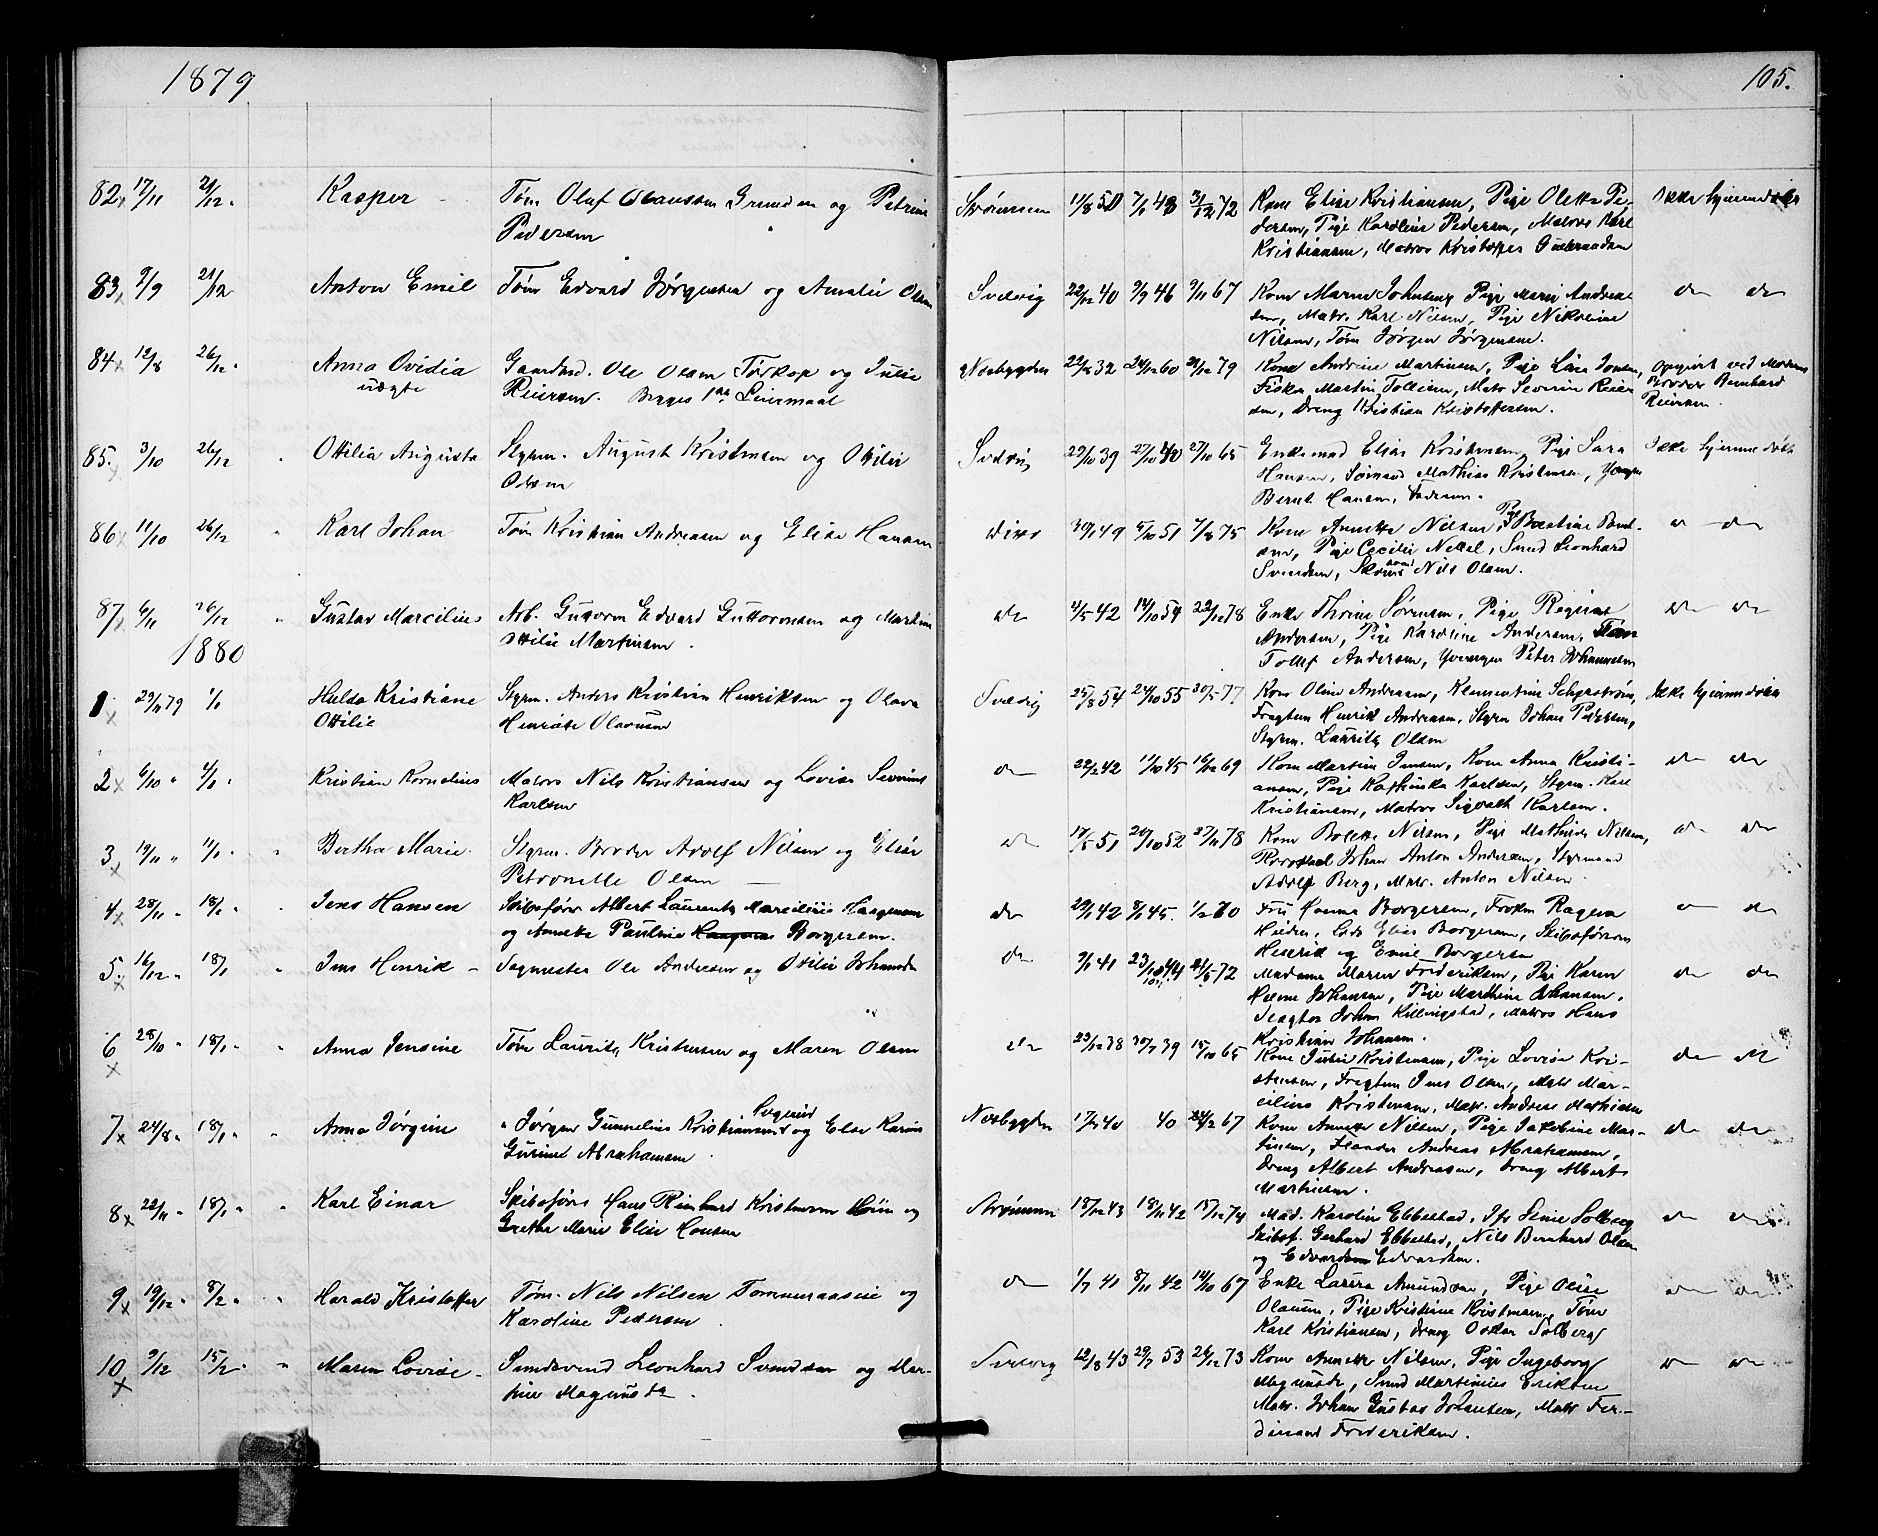 1879
105.
82 17/11 21/12 Kasper Tøm Olaf Olaussen Grunden og Petrine Svømmen 11/8 50 7/1 48 31/12 72 Kone Elise Kristiansen, Pige Olette Pe- Ikke hjemmedøbt
Pedersen dersen, Pige Karoline Pedersen, Matros Karl
Kristiansen, Matros Kristoffer Gulbrandsen
83 9/9 21/12 Anton Emil Tøm Edvard Jørgensen og Amalie Olsen Svelvig 22/12 40 9/9 46 9/11 67 Kone Maren Johnsen, Pige Marie Andrea- do do
sen, Matr. Karl Nilsen, Pige Nikoline
Nilsen, Tøm Jørgen Jørgensen.
84 12/8 26/12 Anna Ovidia Gaardm. Ole Olsen Torkop og Julie Nesbygden 22/12 32 24/12 60 79 Kone Andrine Martinsen, Pige Lina Jonsen, opgivet ved Moderens
uægte Reiersen. Begges 1ste Leiermaal Fisker Martin Tollefsen, Matr Severin Reier- Broder Bernhard
sen, Dreng Kristian Kristoffersen. Reiersen
85. 3/10 26/12 Ottilia Augusta Styrm. August Kristensen og Ottilie Svelvig 29/10 39 27/10 40 27/10 65 Enkemand Elias Kristensen, Pige Sara Ikke hjemmedøbt
Olsen Hansen, Sømand Mathias Kristensen,
Bernt Hansen, Faderen.
86 11/10 26/12 Karl Johan Tøm Kristian Andreasen og Elise Hansen 30/1 49 5/10 51 7/8 75 Kone Annette Nilsen, Pige Bastine Bent- do
sen, Pige Cecilie Nebel, Smed Leonhard
Svendsen, Nils Olsen.
87 6/11 26/12 Gustav Marcelius Arb. Gutorm Edvard Guttormsen og Mardine do 4/5 42 14/10 54 22/12 78 Enke Thrine Sørensen, Pige Regine do do
1880 Ottilie Martinsen. Andersen, Pige Karoline Andersen, Tøm
Tollef Andersen, Peter Johannesen
1 29/11 79 1/1 Hulda Kristiane Styrm. Anders Kristian Henriksen og Olava Svelvig 25/8 54 24/10 55 20/5 77 Kone Oline Andreasen, Klementine Ikke hjemmedøbt
Ottilie Henriette Olausen Fragtem Henrik Andreasen, Styrm Johan Pedersen,
Styrm. Lauritz Olsen
2 6/10 " 4/1 Kristian Kornelius Matros Nils Kristiansen og Lovise Severine do 22/2 42 11/10 45 16/12 69 Kone Martin Jensen, Kone Anna Kristi- do do
Karlsen ansen, Pige Kathinka Karlsen, Styrm. Karl
Kristiansen, Matros Sigvalt Karlsen.
3 19/11 " 11/1 Bertha Marie Styrm. Broder Adolf Nilsen og Elise do 17/5 51 20/10 52 27/11 78 Kone Bolette Nilsen, Pige Mathilde Nilsen, do do
Petronelle Olsen Johan Anton Andersen, Styrmand
Adolf Berg, Matr. Anton Nilsen.
4 28/11 " 18/1 Jens Hansen Skibsfører Albert Laurentz Marcilius Haagensen do 29/1 42 8/1 45. 1/2 70 Fru Hanna Borgersen, Frøken Ragna do
og Annette Pauline Borgersen. Lods Elias Borgersen, Skibsførerne
Henrik og Emil Borgersen
5 16/12 " 18/1 Jens Henrik Sagmester Ole Andersen og Ottilie Johansen do 9/1 41 23/10 44 21/5 72 Madame Maren Frederiksen, Pige Karen do do
Helene Johansen, Pige Marthine Johansen,
Slagter Johan Killingstad, Matros Hans
Kristian Johansen.
6 28/10 " 18/1 Anna Jensine Tøm Lauritz Kristensen og Maren Olsen do 23/12 38 30/7 39 15/10 65 Kone Julie Kristensen, Pige Lovise Kri- do do
stensen, Fragtem Jens Olsen, Matr Mar-
cilius Kristensen, Matr. Andreas Mathisen
7 24/8 " 18/1 Anna Jørgine " Jørgen Gunnelius Kristiansen og Else Karine Nesbygden 17/2 40 40 24/2 67 Kone Annette Nilsen, Pige Jakobine Mar- do do
Gurine Abrahamsen. tinsen, Andreas Abrahamsen,
Dreng Albert Andreasen, Dreng Albert
Martinsen.
8 22/11 " 18/1 Karl Einar Skibsfører Hans Reinhard Kristensen Høien og Svømmen 18/12 43 18/11 42 15/12 74 Mad. Karoline Ebbestad, Jfr Lenie Solberg do do
Grethe Marie Elise Hansen Skibsf. Gerhard Ebbestad, Nils Bernhard Olsen
og Edvardsen.
9 19/12 " 8/2 Harald Kristoffer Tøm. Nils Nilsen Tømmeraasen og do 1/7 41 8/11 42 14/10 67 Enke Laura Amundsen, Pige Olise do do
Karoline Pedersen. Olausen, Pige Kristine Kristensen, Tøm
Karl Kristiansen, dreng Oskar Solberg
10 9/12 15/2 " Maren Lovise Smedsvend Leonhard Svendsen og Mar- Svelvig 12/8 43 29/7 53 26/12 73 Kone Annette Nilsen, Pige Ingeborg do do
tine Magnusdr. Magnusdr, Smed Martinius Eriksen
Matr. Johan Gustav Johansen, Matr Fer-
dinand Frederiksen.